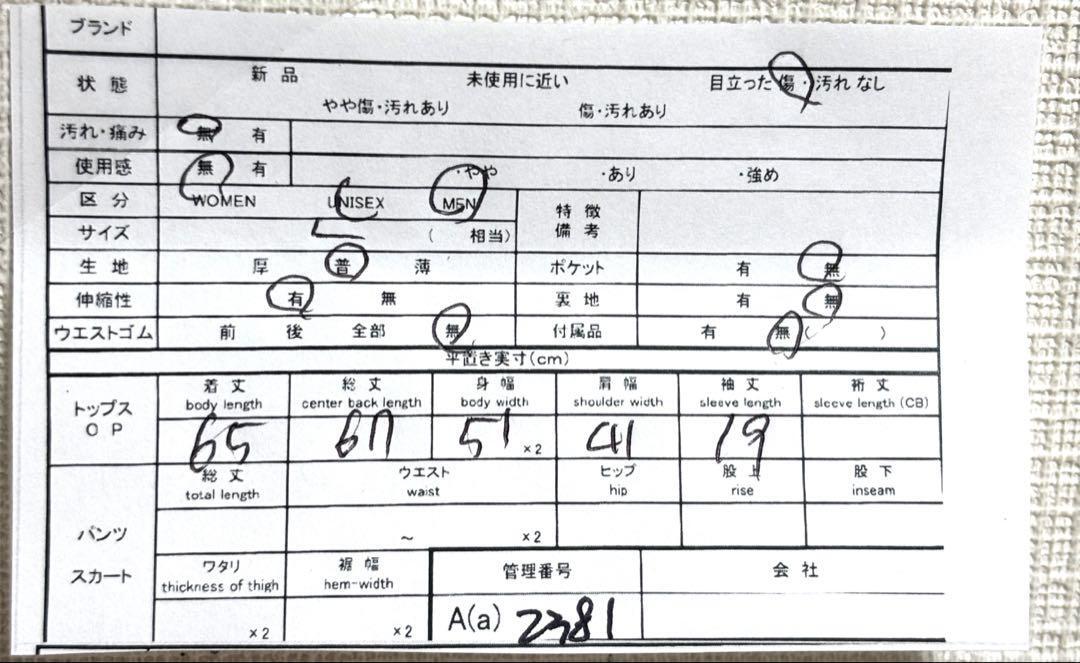 ブランド
状態 新品 未使用に近い 目立った傷・汚れなし
やや傷・汚れあり 傷・汚れあり
汚れ・痛み 無 有
使用感 無 有 ・やや ・あり ・強め
区分 WOMEN UNISEX MEN 特徴
サイズ L ( 相当) 備考
生地 厚 普 薄 ポケット 有 無
伸縮性 有 無 裏地 有 無
ウエストゴム 前 後 全部 無 付属品 有 無 ( )
平置き実寸(cm)
着丈 総丈 身幅 肩幅 袖丈 裄丈
トップス body length center back length body width shoulder width sleeve length sleeve length (CB)
OP 65 67 51 ×2 41 19
総丈 ウエスト ヒップ 股上 股下
total length waist hip rise inseam
パンツ ~ ×2
スカート ワタリ 裾幅 管理番号 会社
thickness of thigh hem-width
×2 ×2 A(a) 2381